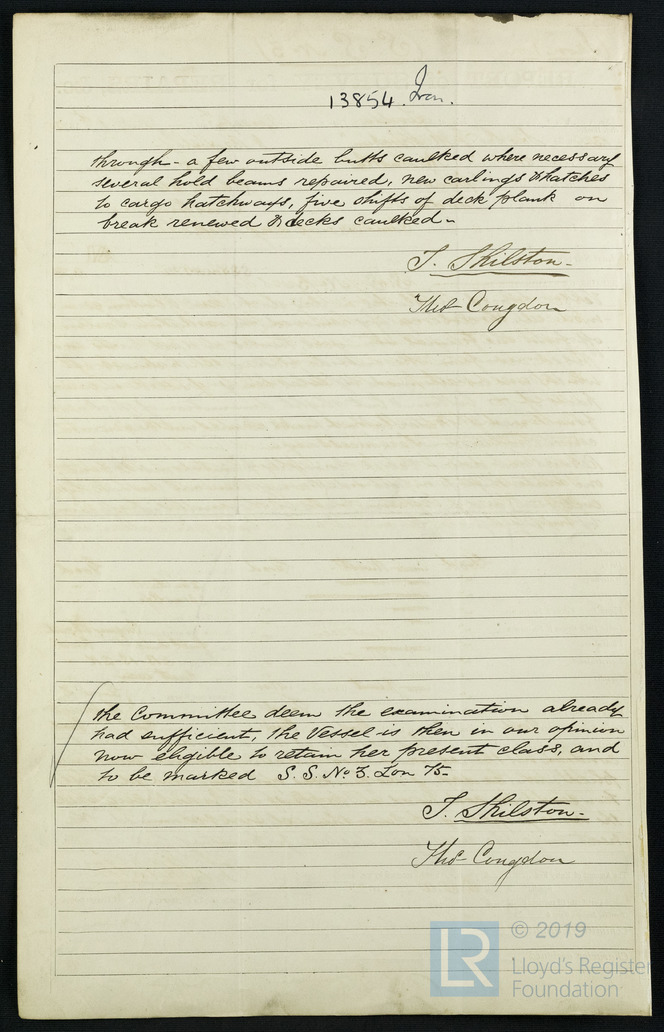 13854 Iron.
through - a few outside butts caulked where necessary
several hold beams repaired, new carlings & hatches
to cargo hatchways, five shifts of deck plank on
break renewed & decks caulked -
J. Skilston -
Thos Congdon
the Committee deem the examination already
had sufficient, the Vessel is then in our opinion
now eligible to retain her present class, and
to be marked S. S. No 3. Lon 75 -
J. Skilston -
Thos Congdon
LR © 2019
Lloyd's Register
Foundation